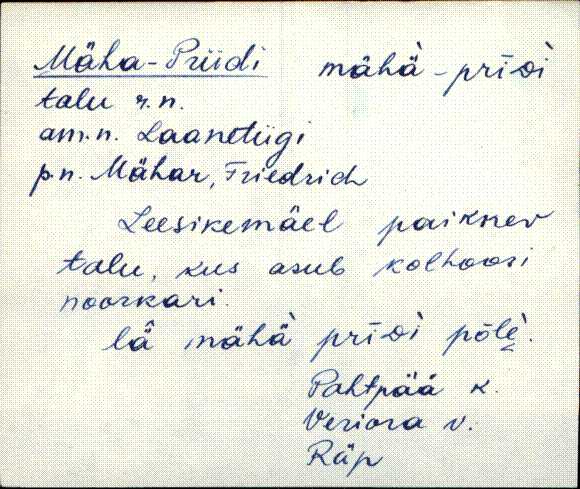 Mäha-Priidi mähä̀-prīᴅì
talu r.n.
am.n. Laanetiigi
p.n. Mähar, Friedrich
Leesikemäel paiknev
talu, kus asub kolhoosi
noorkari.
lä̂ mähä̀ prīᴅì põlè.
Pahtpää k.
Veriora v.
Räp